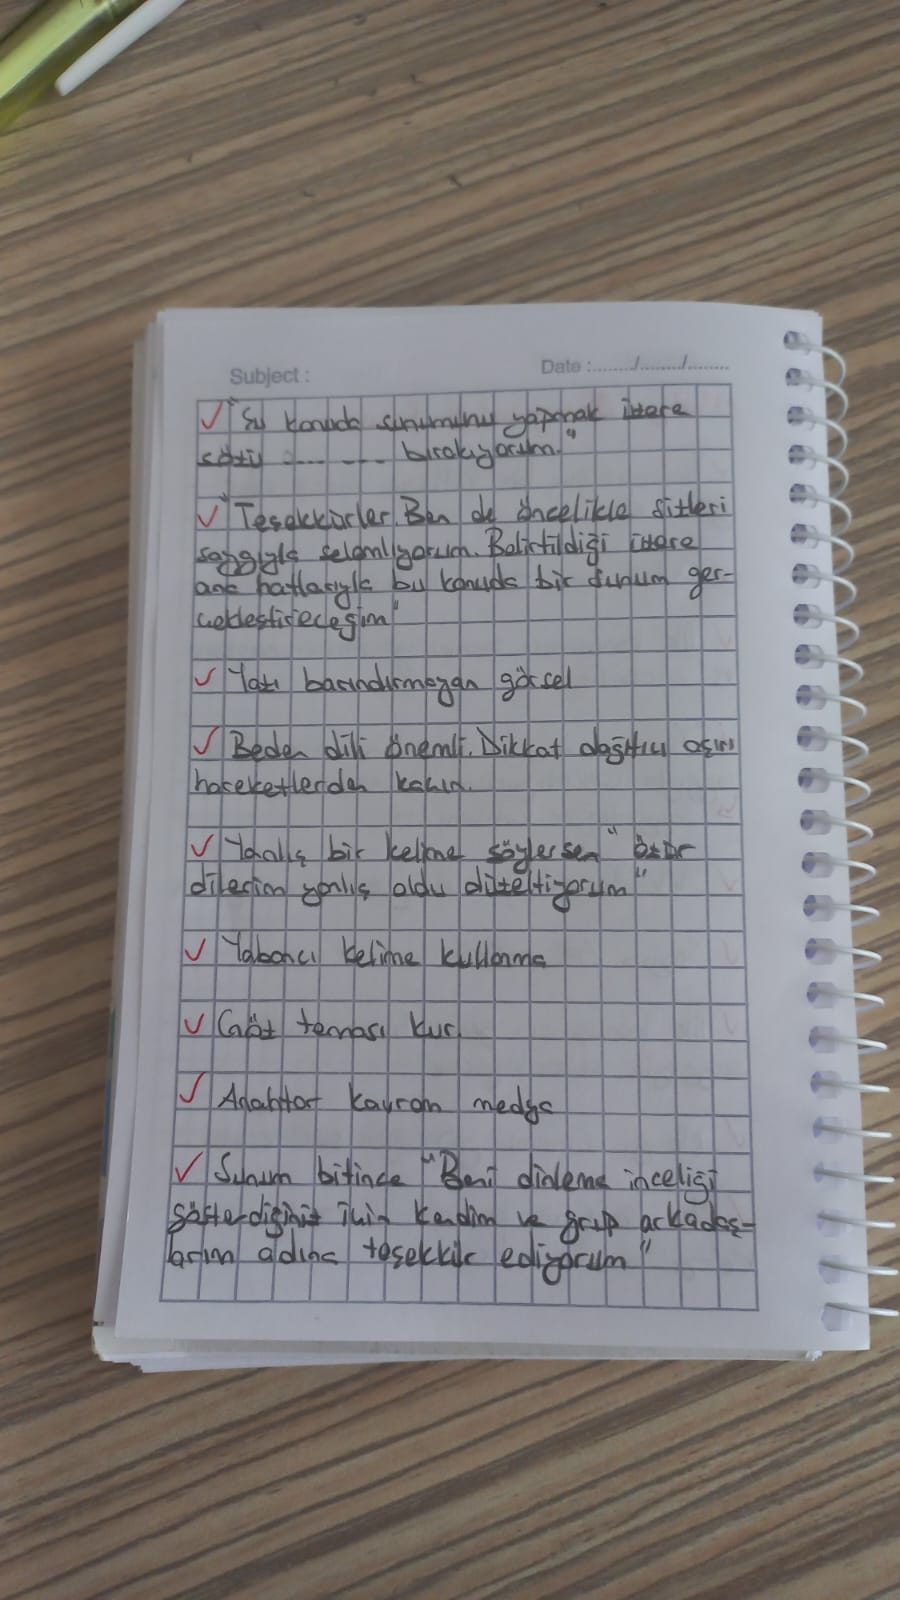 Subject :
Date :......../......../........
✓ "Şu konuda sunumunu yapmak üzere
sözü ........ bırakıyorum."
✓ "Teşekkürler. Ben de öncelikle sizleri
saygıyla selamlıyorum. Belirtildiği üzere
ana hatlarıyla bu konuda bir sunum ger-
çekleştireceğim"
✓ Yazı barındırmayan görsel
✓ Beden dili önemli. Dikkat dağıtıcı aşırı
hareketlerden kaçın.
✓ Yanlış bir kelime söylersen "özür
dilerim yanlış oldu düzeltiyorum"
✓ Yabancı kelime kullanma
✓ Göz teması kur.
✓ Anahtar kavram medya
✓ Sunum bitince "Beni dinleme inceliği
gösterdiğiniz için kendim ve grup arkadaş-
larım adına teşekkür ediyorum"